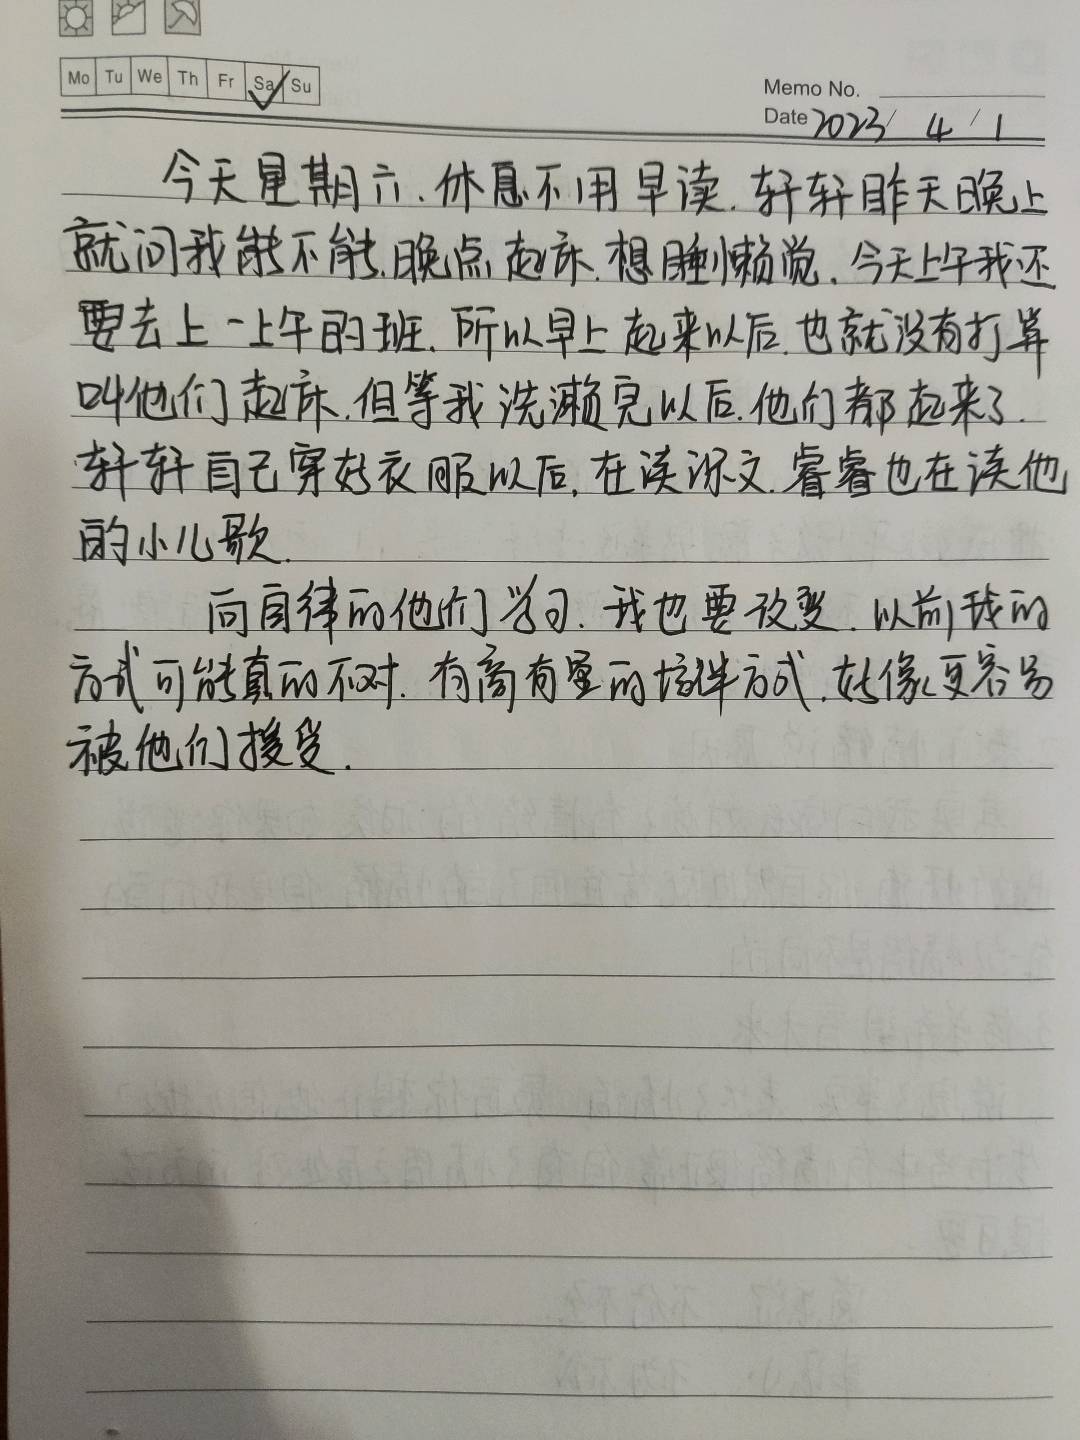 Mo Tu We Th Fr Sa Su
Memo No.
Date 2023/ 4 / 1
今天星期六.休息不用早读.轩轩昨天晚上
就问我能不能.晚点起床.想睡懒觉.今天上午我还
要去上一上午的班.所以早上起来以后.也就没有打算
叫他们起床.但等我洗濑完以后.他们都起来了.
轩轩自己穿好衣服以后.在读课文.睿睿也在读他
的小儿歌.
向自律的他们学习.我也要改变.以前我的
方式可能真的不对.有商有量的陪伴方式.好像更容易
被他们接受.